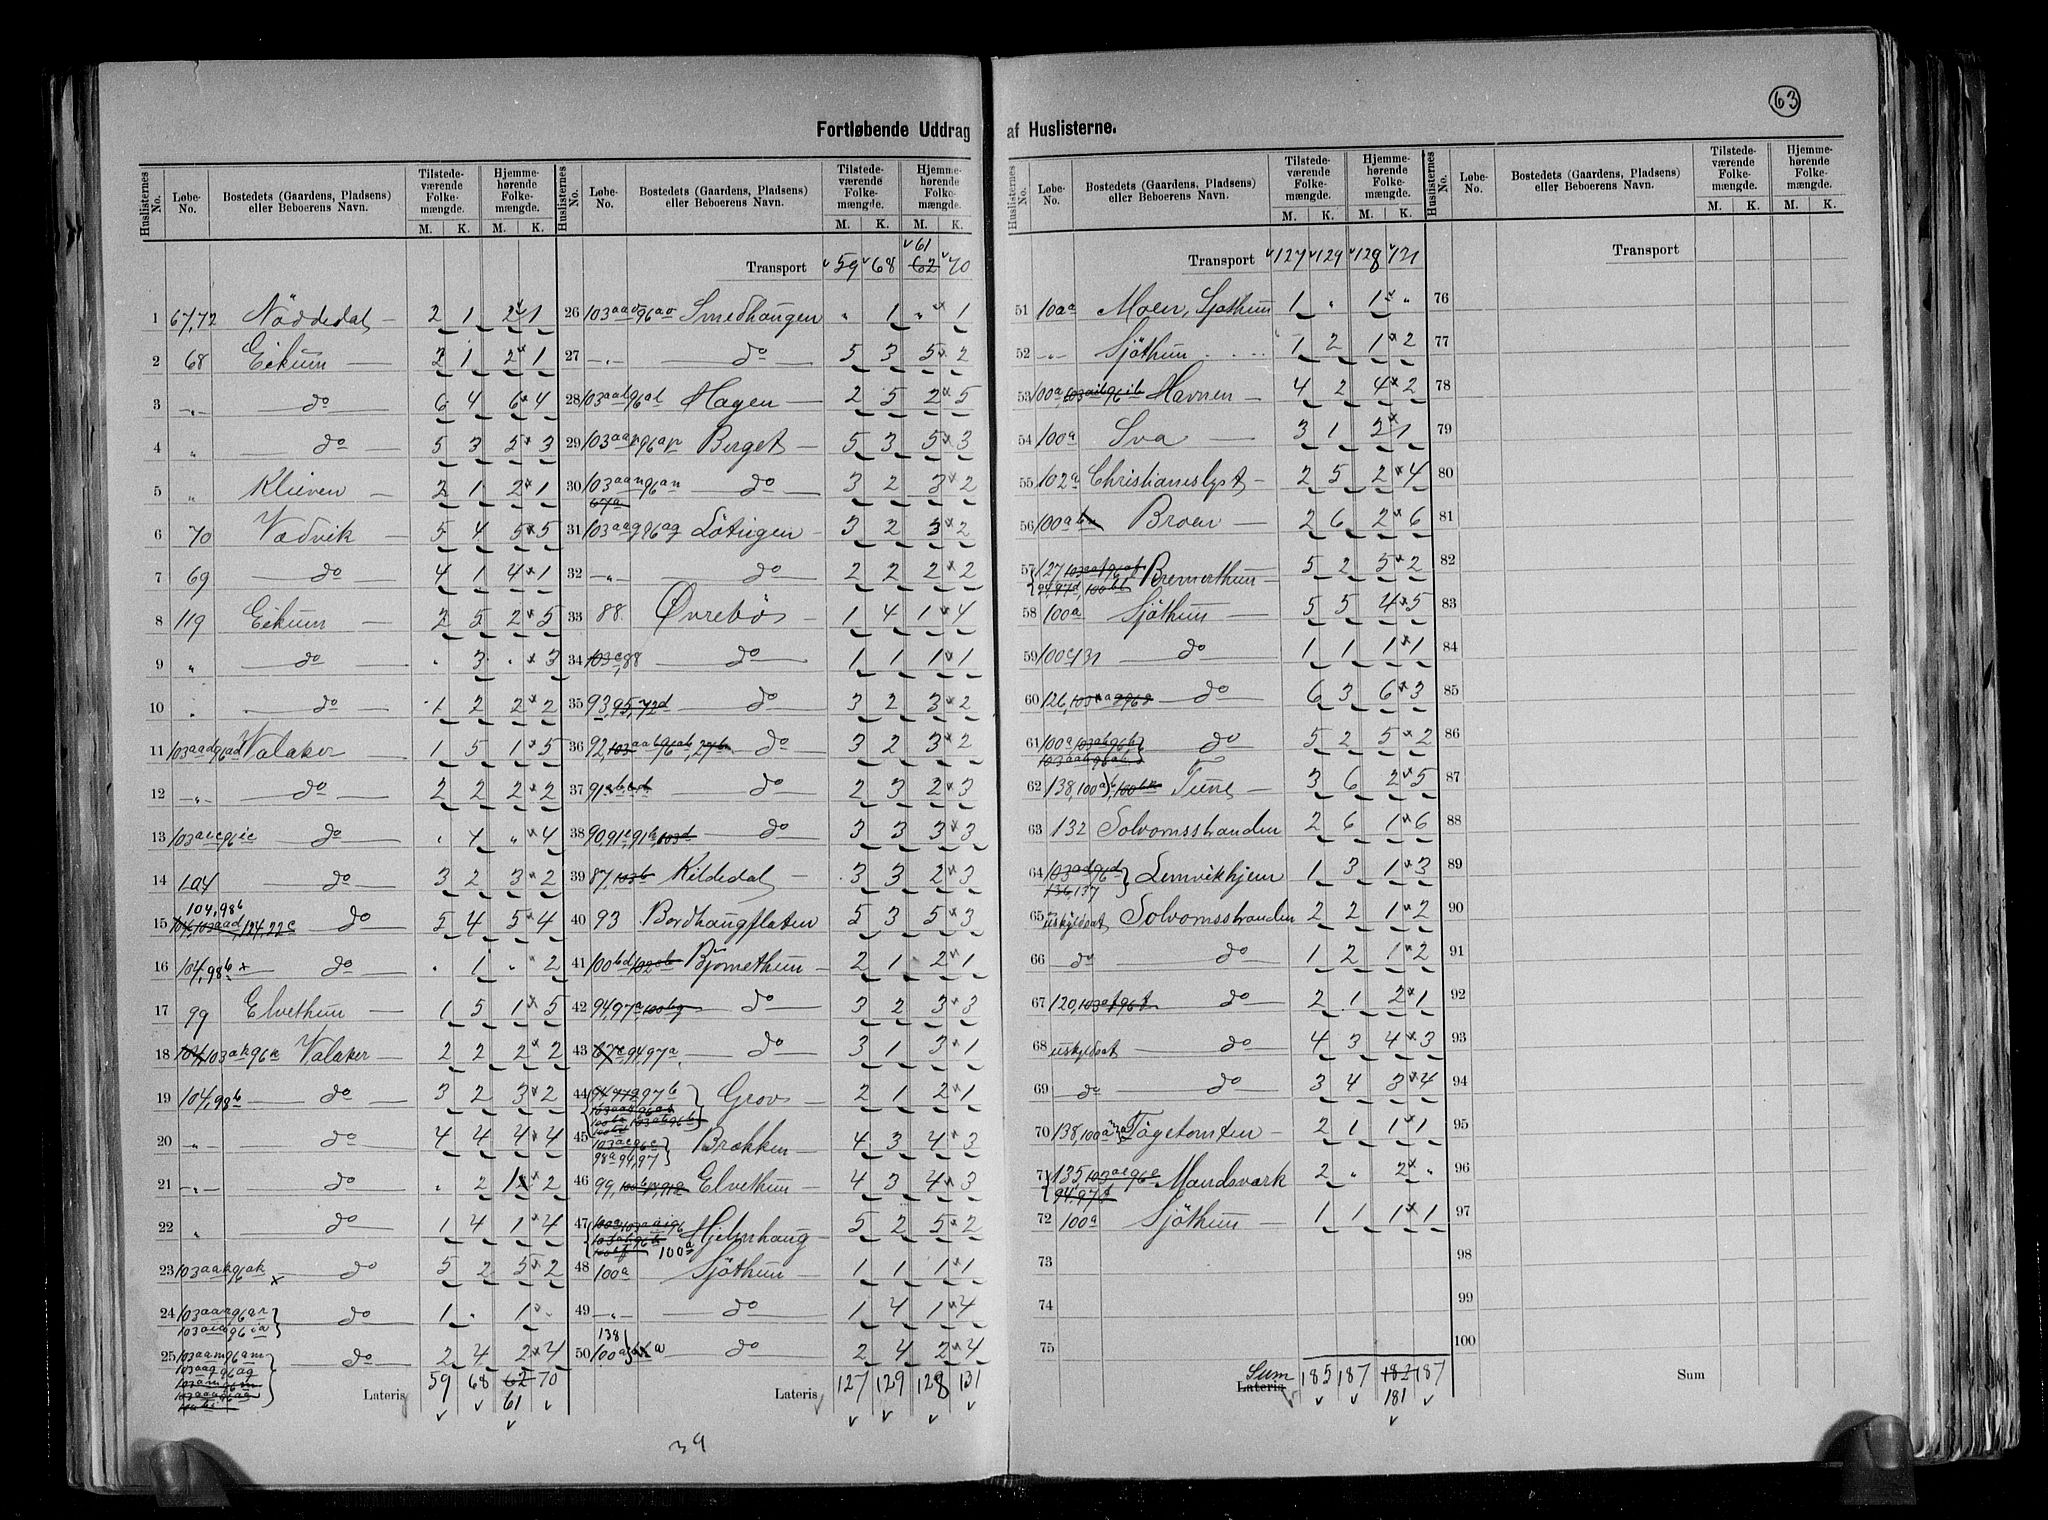 63
Fortløbende Uddrag af Huslisterne.
Huslisternes No. Løbe-No. Bostedets (Gaardens, Pladsens) eller Beboerens Navn. Tilstedeværende Folkemængde. M. K. Hjemmehørende Folkemængde. M. K.
1 67,72 Nöddedal 2 1 2 1
2 68 Eikum 2 1 2 1
3 " do 6 4 6 4
4 " do 5 3 5 3
5 " Klieven 2 1 2 1
6 70 Vædvik 5 4 5 5
7 69 do 4 1 4 1
8 119 Eikum 2 5 2 5
9 " do . 3 . 3
10 . do 1 2 2 2
11 103aad96ad Valaker 1 5 1 5
12 " do 2 2 2 2
13 103aic96ic do . 4 " 4
14 104 do 3 2 3 2
15 104,98b do 5 4 5 4
16 104,98b do . 1 . 2
17 99 Elvethun 1 5 1 5
18 103ak96k Valaker 2 2 2 2
19 104,98b do 3 2 3 2
20 " do 4 4 4 4
21 " do . 2 1 2
22 " do 1 4 1 4
23 103aak96ak do 5 2 5 2
24 103aar96ar 103aia96ia do 1 . 1 .
25 103aam96am 103aag96ag do 2 4 2 4
Lateris 59 68 62 70
61
Transport 59 68 62 70
61
26 103aao96ao Smedhaugen " 1 " 1
27 " do 5 3 5 2
28 103aal96al Hagen 2 5 2 5
29 103aap96ap Berget 5 3 5 3
30 103aan96an do 3 2 3 2
31 103aag96ag Løtrigen 3 2 3 2
32 " do 2 2 2 2
33 88 Øvrebös 1 4 1 4
34 103c,88 do 1 1 1 1
35 93,95,72d do 3 2 3 2
36 92,103aab96ab,27b do 3 2 3 2
37 91 do 2 3 2 3
38 90,91c,91b,103d do 3 3 3 3
39 87,103b Kildedal 3 3 2 3
40 93 Bordhaugflaten 5 3 5 3
41 100bd Bjørnethun 2 1 2 1
42 94,97a,100bg do 3 2 3 3
43 94,97a do 3 1 3 1
44 97b Grov 2 1 2 1
45 103ae96e 98a94,97 Brækken 4 3 4 3
46 99 Elvethun 4 3 4 3
47 100a Hjelmhaug 5 2 5 2
48 100a Sjöthun 1 1 1 1
49 " do 1 4 1 4
50 138 100a do 2 4 2 4
Lateris 127 129 128 131
39
Huslisternes No. Løbe-No. Bostedets (Gaardens, Pladsens) eller Beboerens Navn. Tilstedeværende Folkemængde. M. K. Hjemmehørende Folkemængde. M. K.
Transport 127 129 128 131
51 100a Moen, Sjøthun 1 " 1 "
52 " Sjöthun 1 2 1 2
53 100a,103aib96ib Havnen 4 2 4 2
54 100a Sva 3 1 2 1
55 102a Christianslyst 2 5 2 4
56 100a Broen 2 6 2 6
57 127 Bremerthun 5 2 5 2
58 100a Sjöthun 5 5 4 5
59 100c131 do 1 1 1 1
60 126 do 6 3 6 3
61 100a do 5 2 5 2
62 138,100a Tune 3 6 2 5
63 132 Solvornsstranden 2 6 1 6
64 103ad96d 136,137 Lemvikhjem 1 3 1 3
65 uskyldsat Solvornsstranden 2 2 1 2
66 do do 1 2 1 2
67 120 do 2 1 2 1
68 uskyldsat do 4 3 4 3
69 do do 3 4 3 4
70 138,100a Tøgetomten 2 1 1 1
71 135,103ae96e Mandsværk 2 " 2 "
72 100a Sjöthun 1 1 1 1
73
74
75
Sum Lateris 185 187 182 187
181
Transport
76
77
78
79
80
81
82
83
84
85
86
87
88
89
90
91
92
93
94
95
96
97
98
99
100
Sum